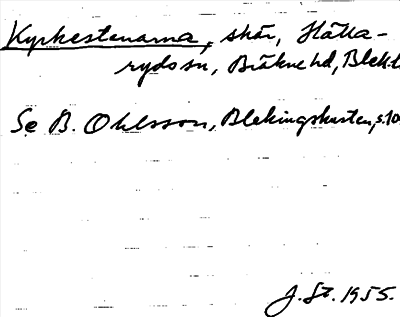 Kyrkestenarna, skär, Hälla-
rydssn, Bräkne hd, Blek.l
Se B. Ohlsson, Blekingskusten, s.10
J. St. 1955.